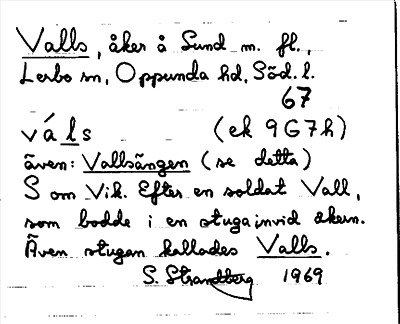 Valls, åker å Sund m. fl.,
Lerbo sn, Oppunda hd, Söd. l.
67
váls (ek 9G7h)
även: Vallsängen (se detta)
S om Vik. Efter en soldat Vall,
som bodde i en stuga invid åkern.
Även stugan kallades Valls.
S. Strandberg 1969